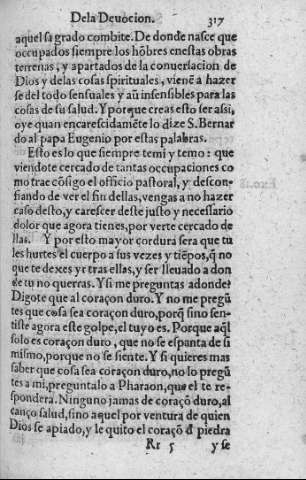 Dela Deuocion. 317
aquel sagrado combite. De donde nasce que
occupados siempre los hõbres enestas obras
terrenas, y apartados de la conuersacion de
Dios y delas cosas spirituales, vienẽ a hazer
se del todo sensuales y aũ insensibles para las
cosas de su salud. Y porque creas esto ser assi,
oye quan encarescidamẽte lo dize S. Bernar
do al papa Eugenio por estas palabras.
Esto es lo que siempre temi y temo: que
viendote cercado de tantas occupaciones co
mo trae cõsigo el officio pastoral, y descon-
fiando de ver el fin dellas, vengas a no hazer
caso desto, y carescer deste justo y necessario
dolor que agora tienes, por verte cercado de
llas. Y por esto mayor cordura sera que tu
les hurtes el cuerpo a sus vezes y tiẽpos, q̃ no
que te dexes yr tras ellas, y ser lleuado a don
de tu no querras. Y si me preguntas adonde?
Digote que al coraçon duro. Y no me pregũ
tes que cosa sea coraçon duro, porq̃ sino sen-
tiste agora este golpe, el tuyo es. Porque aq̃l
solo es coraçon duro, que no se espanta de si
mismo, porque no se siente. Y si quieres mas
saber que cosa sea coraçon duro, no lo pregũ
tes a mi, preguntalo a Pharaon, que el te re-
spondera. Ninguno jamas de coraçõ duro, al
canço salud, sino aquel por ventura de quien
Dios se apiado, y le quito el coraçõ đ piedra
Rr 5 y se